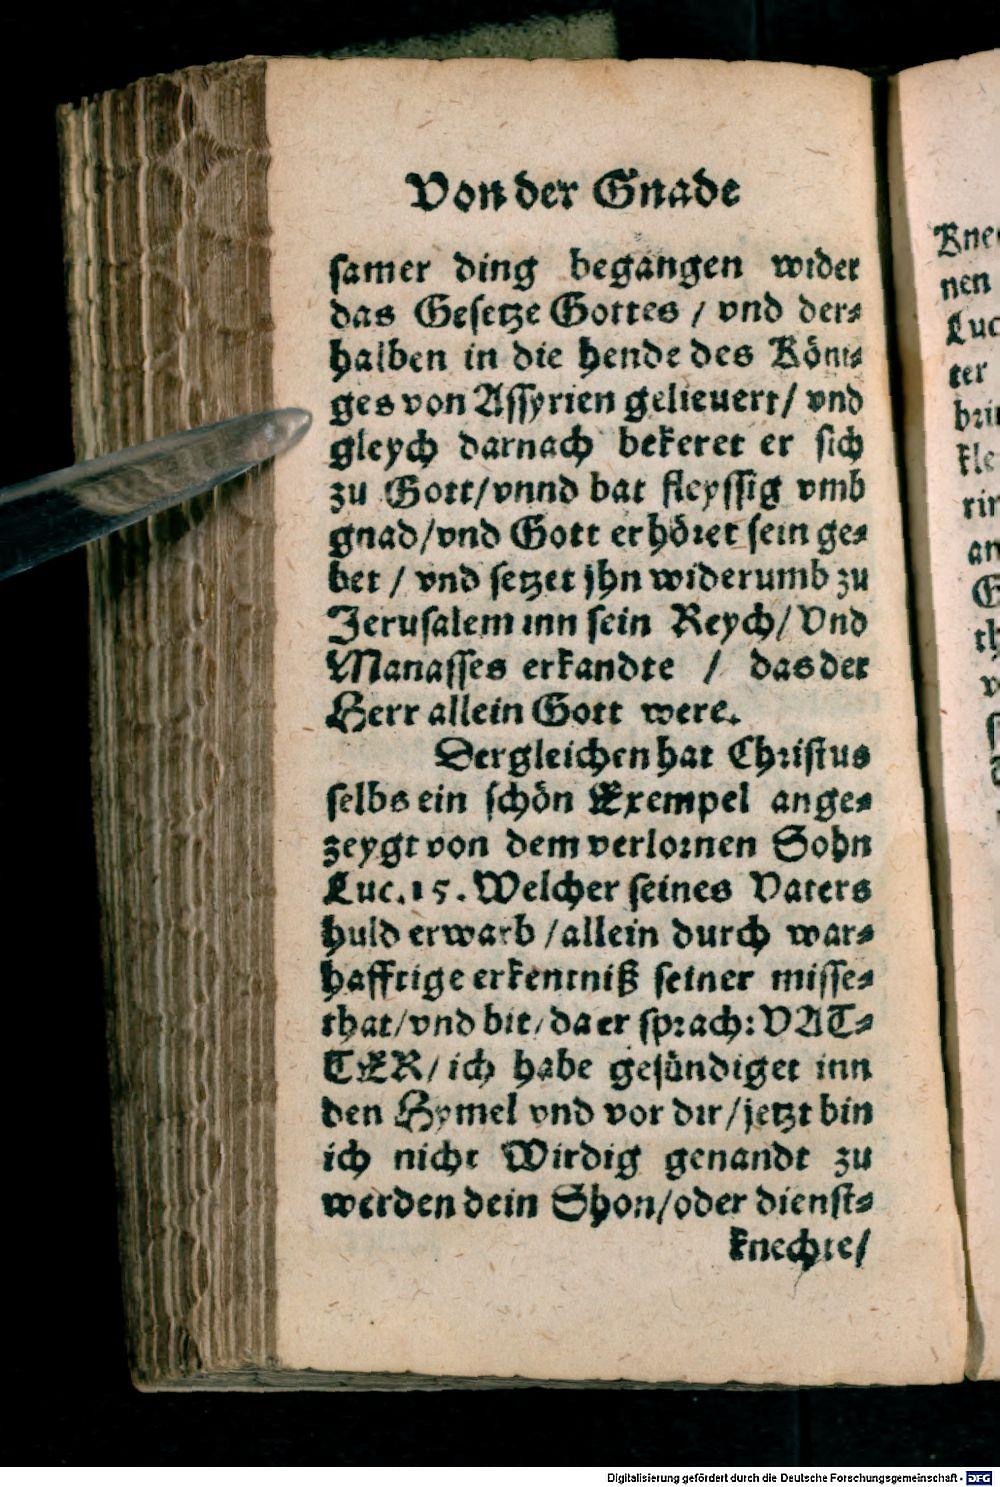 Von der Gnade
samer ding begangen wider
das Gesetze Gottes / vnd der⸗
halben in die hende des Köni⸗
ges von Assyrien gelieuert / vnd
gleych darnach bekeret er sich
zu Gott / vnnd bat fleyssig vmb
gnad / vnd Gott erhöret sein ge⸗
bet / vnd setzet jhn widerumb zu
Jerusalem inn sein Reych / Vnd
Manasses erkandte / das der
Herr allein Gott were.
Dergleichen hat Christus
selbs ein schön Exempel ange⸗
zeygt von dem verlornen Sohn
Luc. 15. Welcher seines Vaters
huld erwarb / allein durch war⸗
hafftige erkentniß seiner misse⸗
that / vnd bit / da er sprach: VAT⸗
TER / ich habe gesündiget inn
den Hymel vnd vor dir / jetzt bin
ich nicht Wirdig genandt zu
werden dein Shon / oder dienst⸗
knechte /
Kne
nen
Luc
ter
kle
an
Digitalisierung gefördert durch die Deutsche Forschungsgemeinschaft - DFG